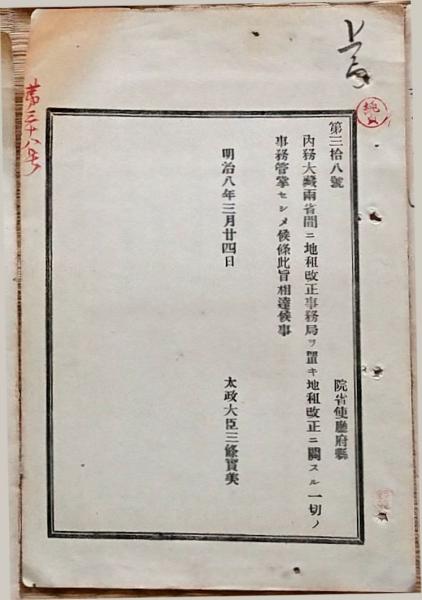 第三十八号
第三拾八號
院省使廳府縣
內務大藏兩省間ニ地租改正事務局ヲ置キ地租改正ニ關スル一切ノ
事務管掌セシメ候條此旨相達候事
明治八年三月廿四日
太政大臣三條實美